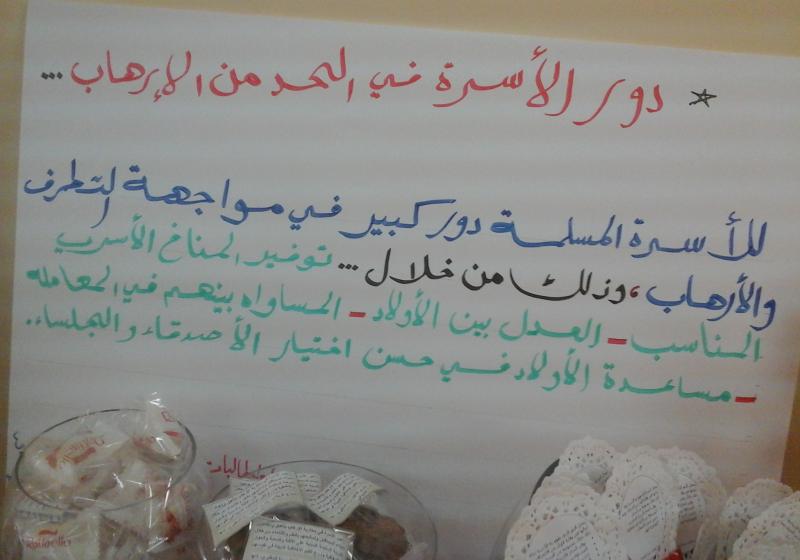 * دور الأسرة في الحد من الإرهاب ...
للأسرة المسلمة دور كبير في مواجهة التطرف
والأرهاب، وذلك من خلال ... توفير المناخ الأسري
المناسب - العدل بين الأولاد - المساواه بينهم في المعامله
- مساعدة الأولاد في حسن اختيار الأصدقاء والجلساء.
Raffaello